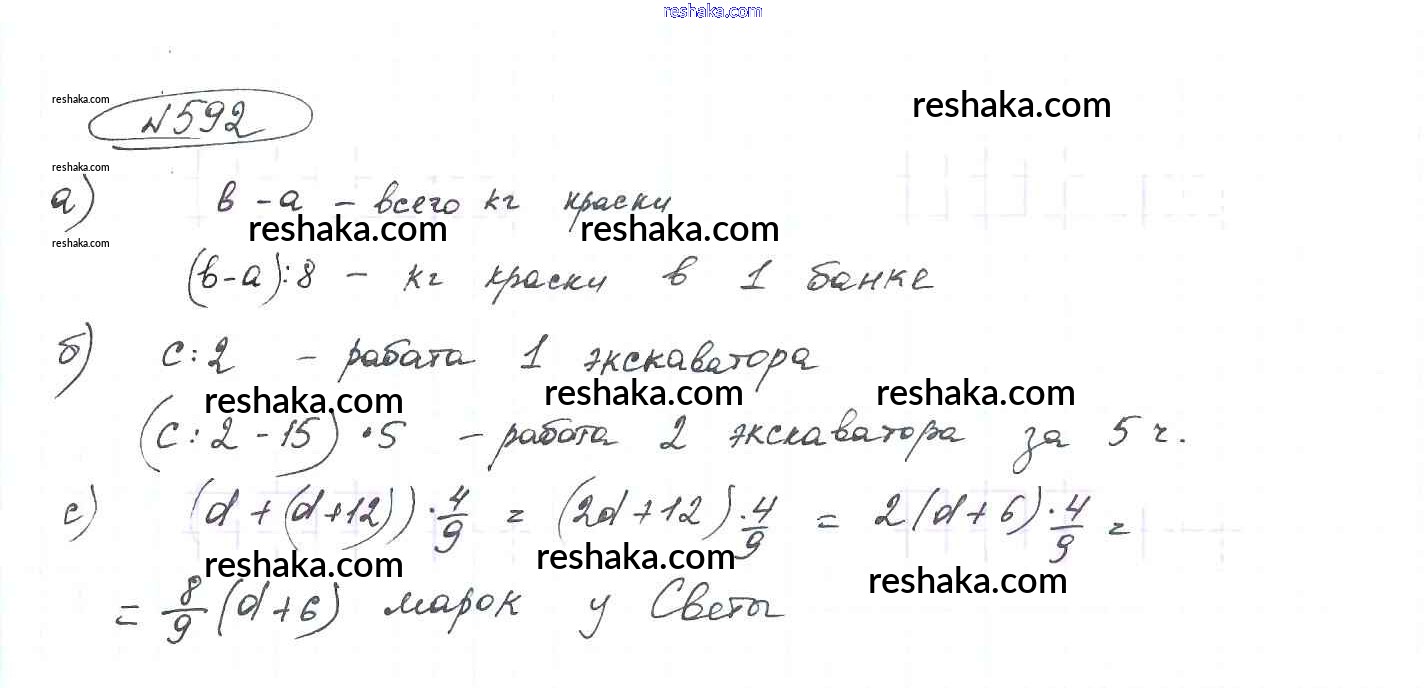 reshaka.com
reshaka.com
№592
reshaka.com
reshaka.com
а) в - а - всего кг краски
reshaka.com
reshaka.com reshaka.com
(в-а):8 - кг краски в 1 банке
б) с:2 - работа 1 экскаватора
reshaka.com reshaka.com reshaka.com
(с:2-15)•5 - работа 2 экскаватора за 5 ч.
с) (d+(d+12))·4/9 = (2d+12)·4/9 = 2(d+6)·4/9 =
reshaka.com reshaka.com reshaka.com
= 8/9 (d+6) марок у Светы